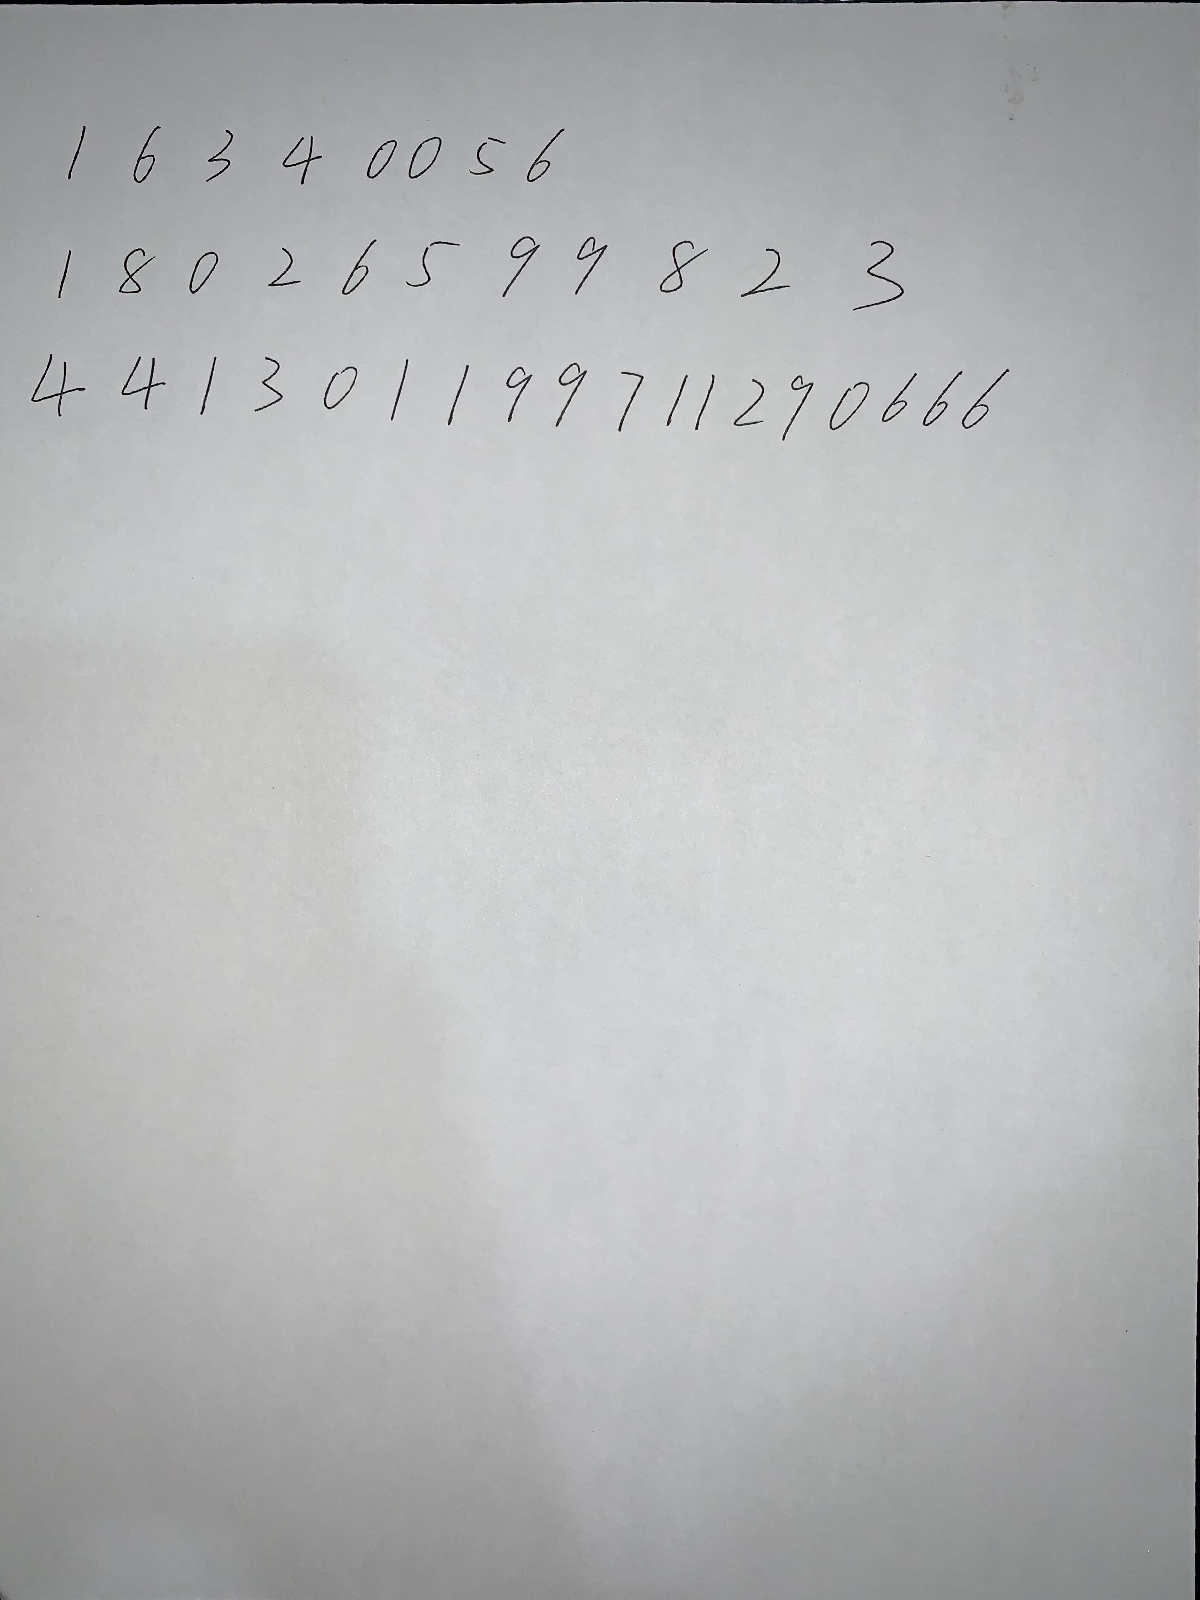 1 6 3 4 0 0 5 6
1 8 0 2 6 5 9 9 8 2 3
4 4 1 3 0 1 1 9 9 7 1 1 2 9 0 6 6 6